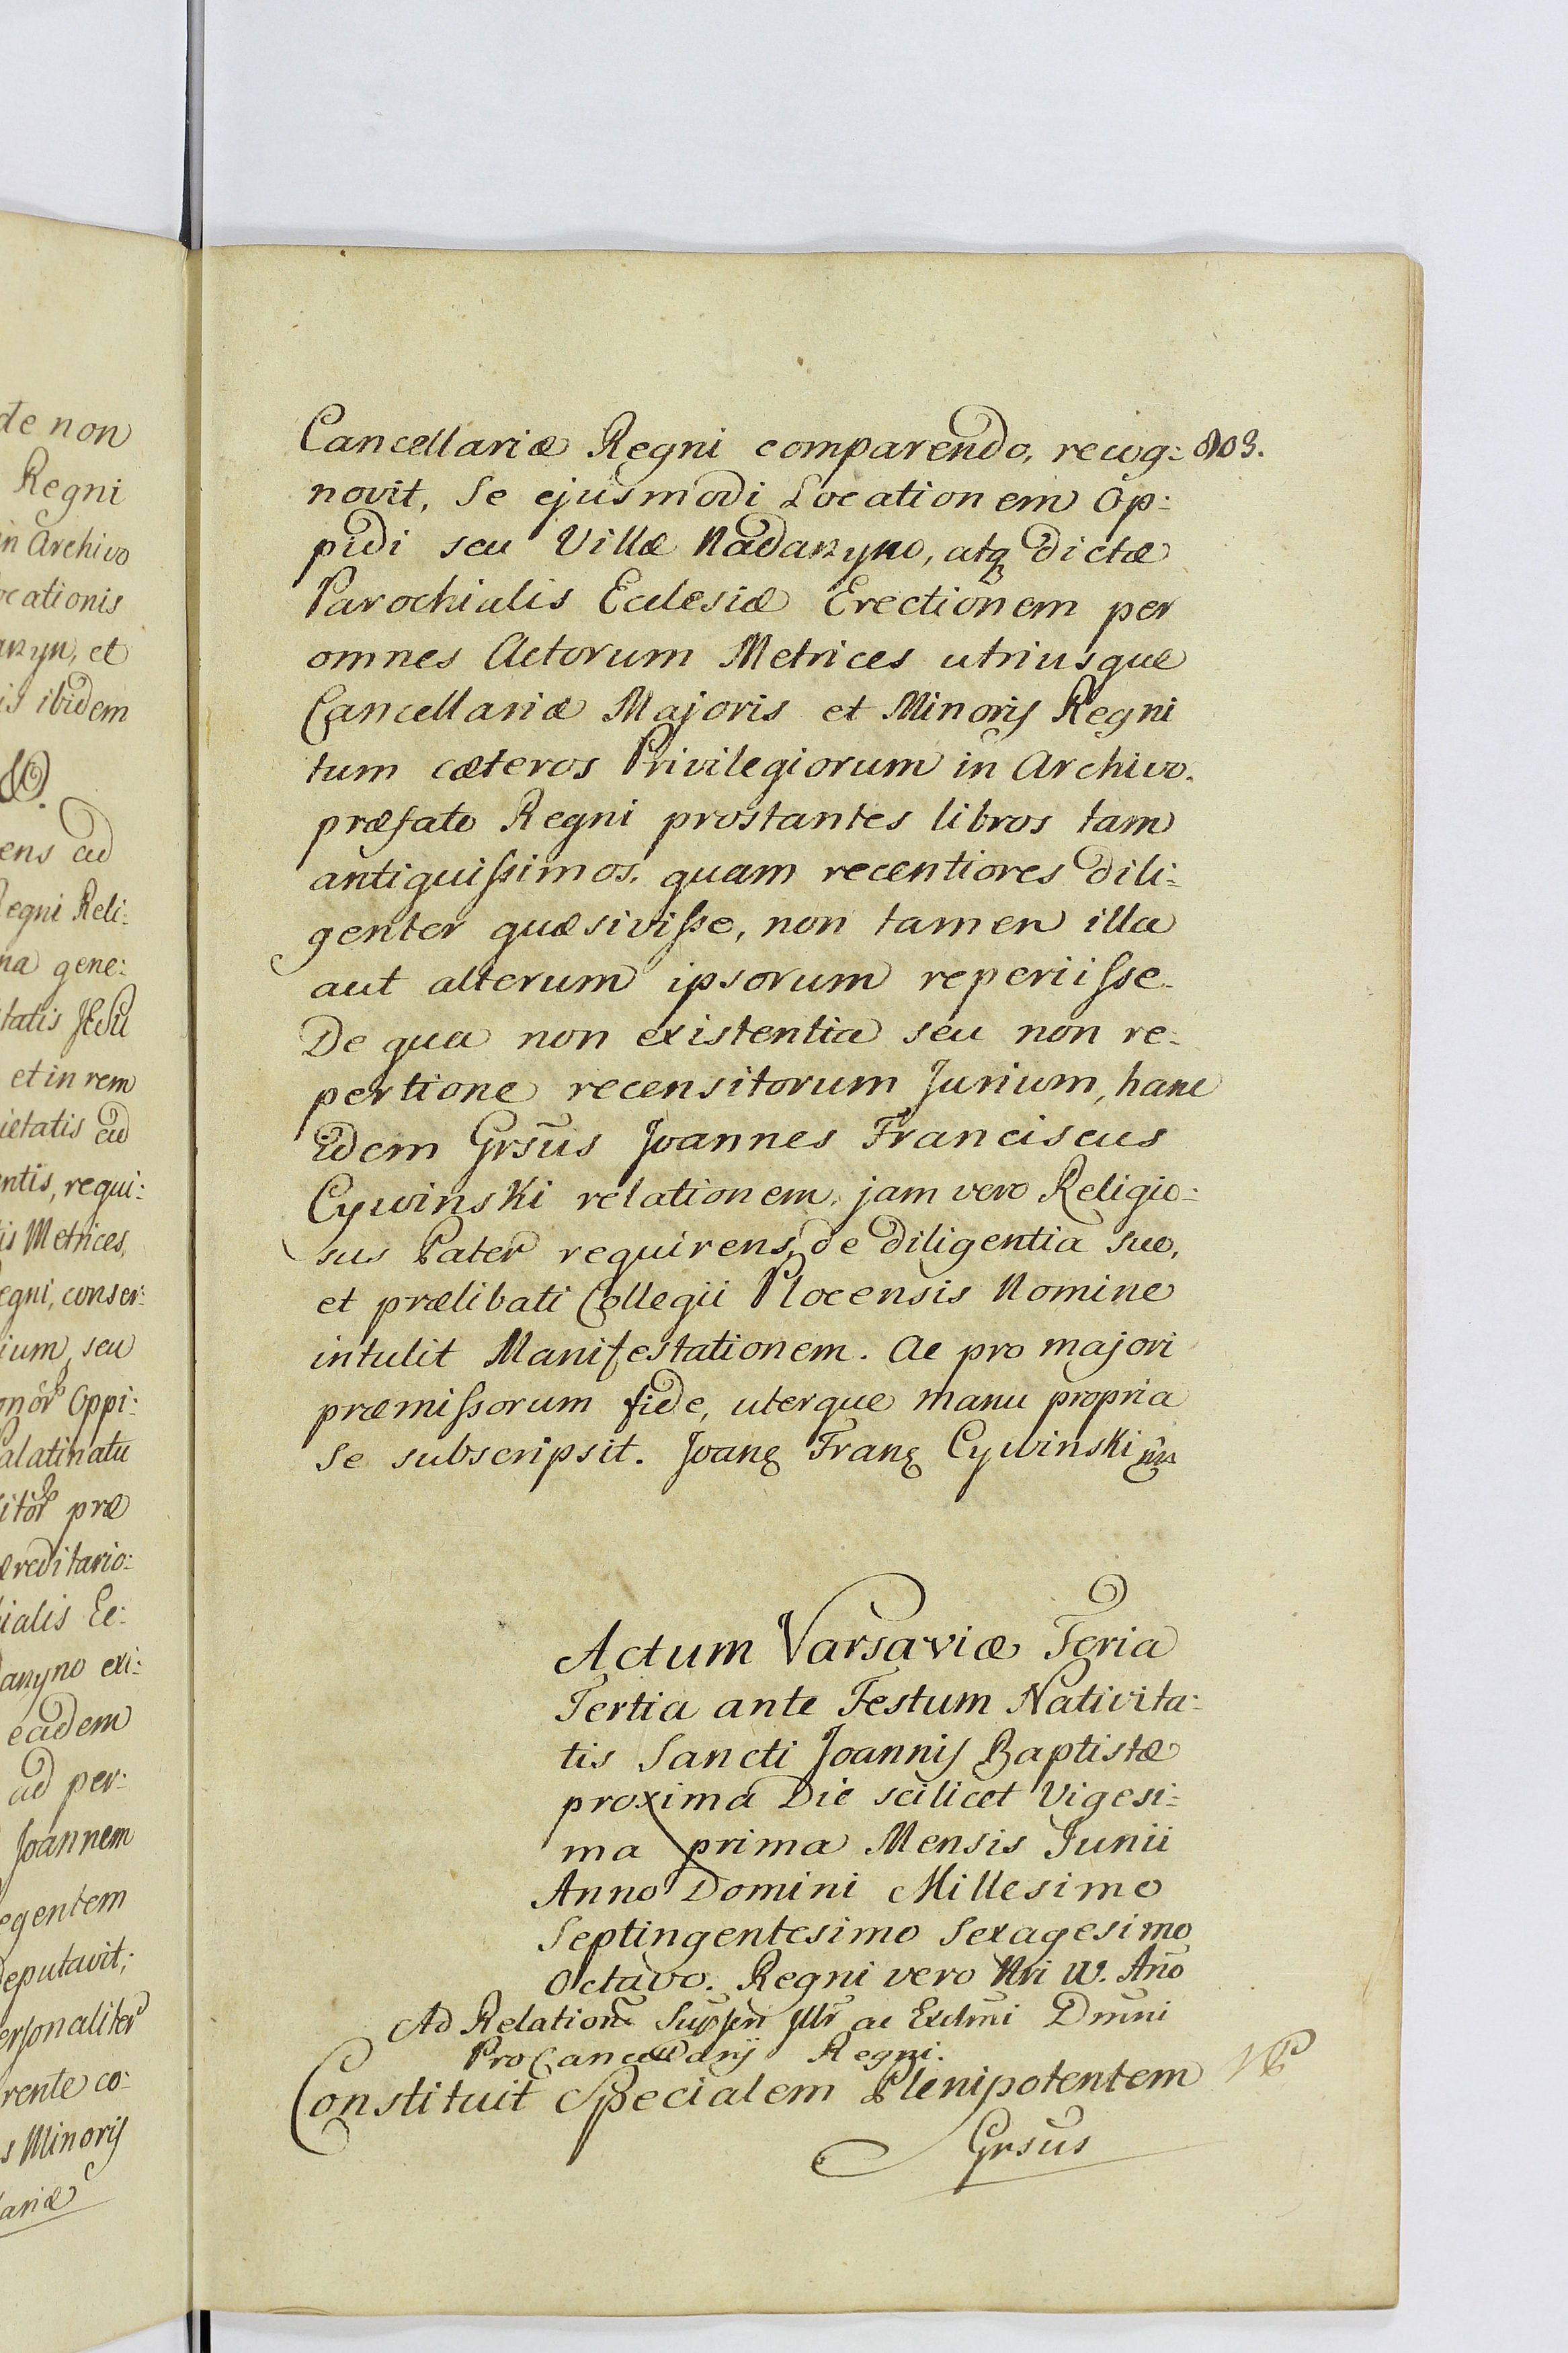 de non
Regni
in Archivo
ocationis
anzyn, et
is ibidem
ens ad
Regni Reli:
na gene:
tatis JESu
et in rem
ietatis ad
entis, requi:
is Metrices,
egni, conser:
ium, seu
Oppi:
alatinatu
præ
æreditario:
ialis Ec:
anyno exi:
eadem
ad per:
Joannem
egentem
deputavit;
ersonaliter
rente co:
s Minoris
ariæ
Cancellariæ Regni comparendo, recog: 803.
novit, Se ejusmodi Locationem Op:
pidi seu Villæ Nadarzyno, atq dictæ
Parochialis Ecclesiæ Erectionem per
omnes Actorum Metrices utriusque
Cancellariæ Majoris et Minoris Regni
tum cæteros Privilegiorum in Archivo
præfato Regni prostantes libros tam
antiquissimos, quam recentiores dili:
genter quæsivisse, non tamen illa
aut alterum ipsorum reperiisse.
De qua non existentia seu non re:
pertione recensitorum Jurium, hanc
idem Grsus Joannes Franciscus
Cywinski relationem, jam vero Religio:
sus Pater requirens, de diligentia sua,
et prælibati Collegii Plocensis Nomine
intulit Manifestationem. Ac pro majori
præmissorum fide, uterque manu propria
se subscripsit. Joan Fran Cywinski mp
Actum Varsaviæ Feria
Tertia ante Festum Nativita:
tis Sancti Joannis Baptistæ
proxima Die scilicet Vigesi:
ma prima Mensis Junii
Anno Domini Millesimo
Septingentesimo Sexagesimo
Octavo. Regni vero Nri IV. Año
Ad Relation Illr ac Exclmi Dmni
ProCancellarij Regni.
Constituit Specialem Plenipotentem
Grsus